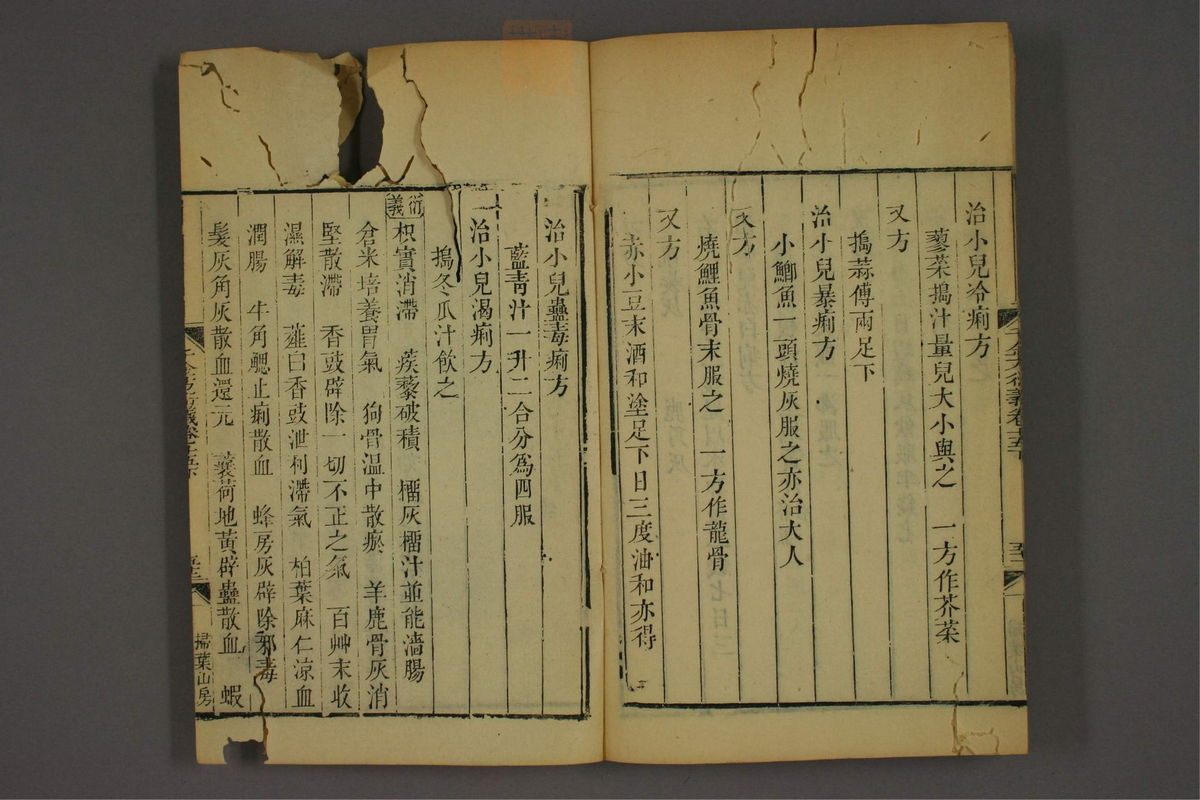 治小兒冷痢方
蓼菜搗汁量兒大小與之　一方作芥菜
又方
搗蒜傅兩足下
治小兒暴痢方
小鯽魚一頭燒灰服之亦治大人
又方
燒鯉魚骨末服之　一方作龍骨
又方
赤小豆末酒和塗足下日三度油和亦得
治小兒蠱毒痢方
藍青汁一升二合分爲四服
治小兒渴痢方
搗冬瓜汁飲之
衍義
枳實消滯　蒺藜破積　榴灰榴汁並能濇腸
倉米培養胃氣　狗骨溫中散瘀　羊鹿骨灰消
堅散滯　香豉辟除一切不正之氣　百艸末收
濕解毒　薤白香豉泄利滯氣　柏葉麻仁涼血
潤腸　牛角䚡止痢散血　蜂房灰辟除邪毒
髮灰角灰散血還元　蘘荷地黃辟蠱散血　蝦
掃葉山房